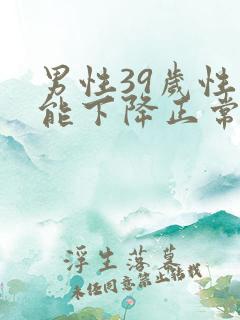 男性39歲性
能下降正常
浮生落幕
未经同意禁止转载